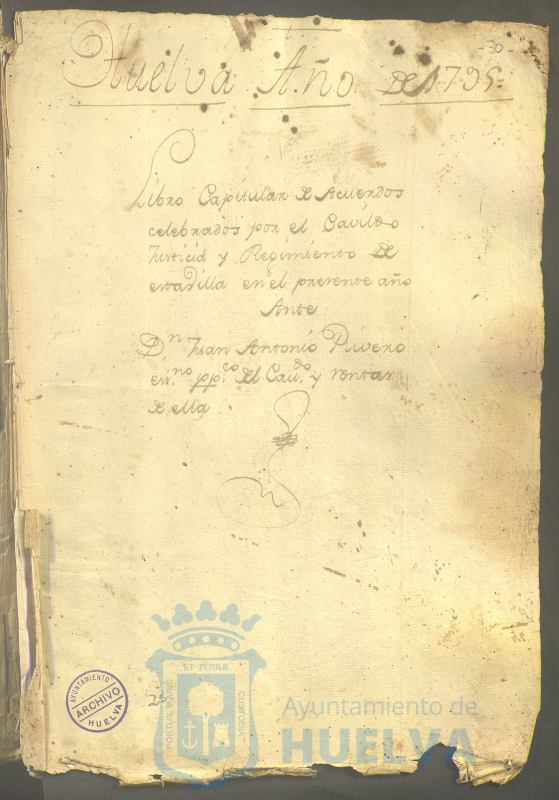 - 30 -
Huelva Año de 1795
Libro Capitular de Acuerdos
celebrados por el Cavildo
Justicia y Regimiento de
esta Villa en el presente año
Ante
Dn Juan Antonio Rivero
esno ppco del Cavdo y rentas
de ella
25
AYUNTAMIENTO
ARCHIVO
HUELVA
PORTUS MARIS
ET TERRÆ
CUSTODIA
Ayuntamiento de
HUELVA